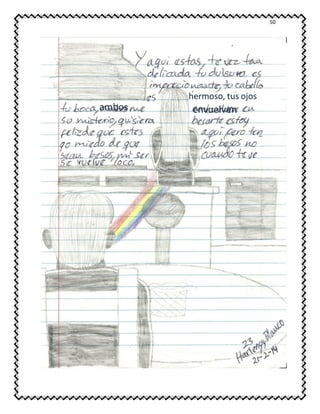 50
Y aqui estas, te vez tan
delicada tu dulsura es
imprecionante, tu cabello
es hermoso, tus ojos
tu boca, ambos me envuelven en
su misterio, quisiera besarte estoy
feliz de que estes aqui pero ten
go miedo de que los besos no
sean besos, mi ser cuando te ve
se vuelve loco.
23
21-2-14